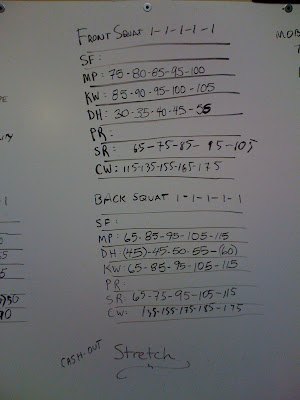 FRONT SQUAT 1-1-1-1-1
SF:
MP: 75-80-85-95-100
KW: 85-90-95-100-105
DH: 30-35-40-45-55
PR:
SR: 65-75-85-95-105
CW: 115-135-155-165-175
BACK SQUAT 1-1-1-1-1
SF:
MP: 65-85-95-105-115
DH: (45)-45-50-55-(60)
KW: 65-85-95-105-115
PR:
SR: 65-75-95-105-115
CW: 135-155-175-185-195
CASH-OUT Stretch
MOB